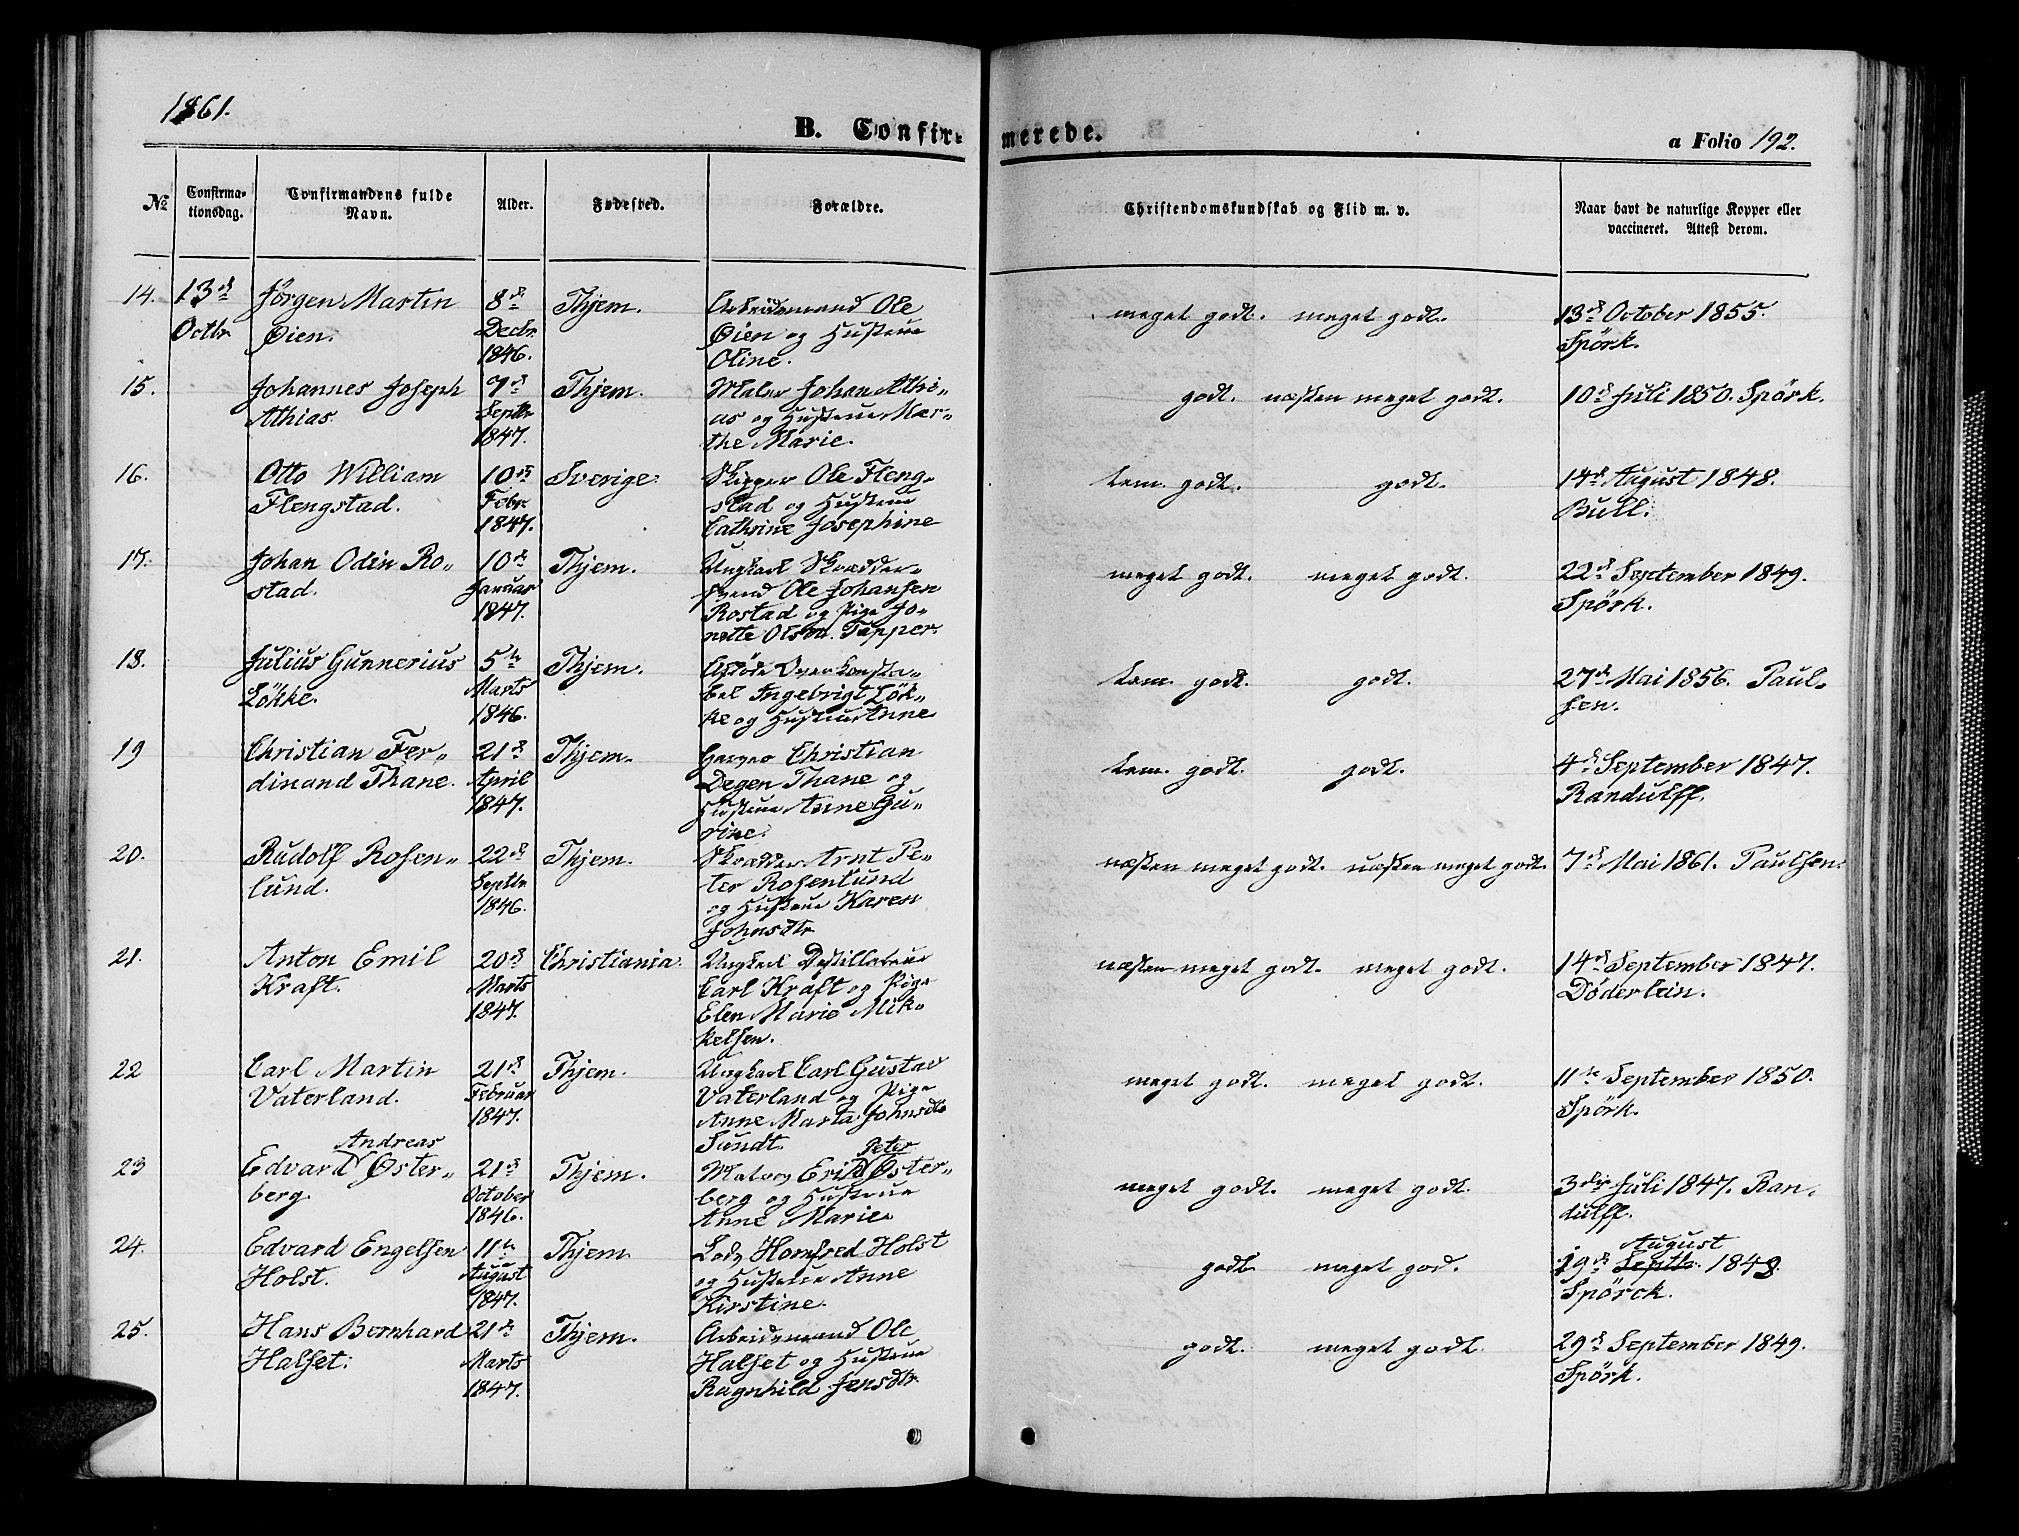 1861.
B. Confirmerede.
a Folio 192.
No
Confirmationsdag.
Confirmandens fulde Navn.
Alder.
Fødested.
Forældre.
Christendomskundskab og Flid m. v.
Naar havt de naturlige Kopper eller vaccineret. Attest derom.
14. 13de Jörgen Martin 8de Thjem. Arbeidsmand Ole meget godt. meget godt. 13de October 1855.
Octbr Øien. Decbr Øien og Hustrue Spörk.
1846. Oline.
15. Johannes Joseph 7de Thjem. Maler Johan Athi- godt. næsten meget godt. 10de Juli 1850. Spörk.
Athias. Septbr as og Hustrue Mar-
1847. the Marie.
16. Otto William 10de Sverige. Skipper Ole Fleng- tem. godt. godt. 14de August 1848.
Flengstad. Febr. stad og Hustrue Bull.
1847. Cathrine Josephine
17. Johan Odin Ro- 10de Thjem. Ungkarl Skrædder- meget godt. meget godt. 22de September 1849.
stad. Januar svend Ole Johansen Spörk.
1847. Rostad og Pige Jo-
nette Olsdtr. Tapper.
18. Julius Gunnerius 5te Thjem. Overkonsta- tem. godt. godt. 27de Mai 1856. Paul-
Lökke. Marts bel Ingebrigt Lök- sen.
1846. ke og Hustrue Anne
19 Christian Fer- 21de Thjem. Christian tem. godt. godt. 4de September 1847.
dinand Thane. April Degen Thane og Randulff.
1847. Hustrue Anne Gu-
rine.
20. Rudolf Rosen- 22de Thjem. Skrædder Arnt Pe- næsten meget godt. næsten meget godt. 7de Mai 1861. Paulsen.
lund. Septbr ter Rosenlund
1846. og Hustrue Karen
Johnsdtr
21. Anton Emil 20de Christiania. Ungkarl Destillateur næsten meget godt. meget godt. 14de September 1847.
Kraft. Marts Carl Kraft og Pige Döderlein.
1847. Elen Marie Mik-
kelsen.
22 Carl Martin 21de Thjem. Ungkarl Carl Gustav meget godt. meget godt. 11te September 1850.
Vaterland. Februar Vaterland og Pige Spörk.
1847. Anne Marta Johnsdtr
Sundt.
Andreas Peter
23 Edvard Øster- 21de Thjem. Erik Øster- meget godt. meget godt. 3die Juli 1847. Ran-
berg. October berg og Hustrue dulff.
1846. Anne Marie.
August
24. Edvard Engelsen 11te Thjem. Lods Homfred Holst godt meget god. 19de Septbr. 1848.
Holst. August og Hustrue Anne Spörck.
1847. Kirstine.
25. Hans Bernhard 21de Thjem. Arbeidsmand Ole godt. meget godt. 29de September 1849.
Halset. Marts Halset og Hustrue Spörk.
1847. Ragnhild Jensdtr.